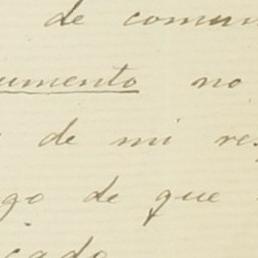 de comun
umento no
de mi re
go de que
cado